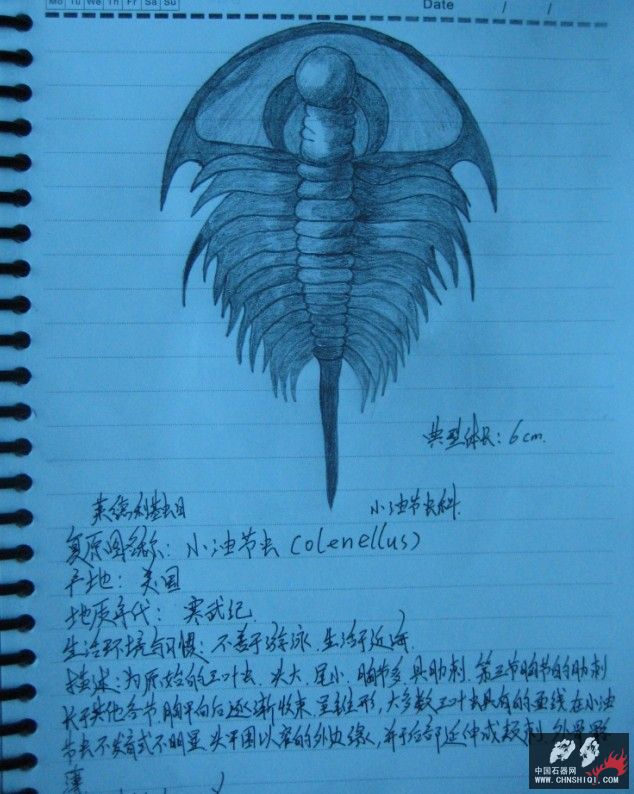 Mo Tu We Th Fr Sa Su
Date / /
典型体长: 6cm.
莱德利基虫目
小油节虫科
复原图名称: 小油节虫 (olenellus)
产地: 美国
地质年代: 寒武纪
生活环境与习惯: 不善于游泳. 生活于近海.
描述: 为原始的三叶虫. 头大. 尾小. 胸节多. 具肋刺. 第三节胸节的肋刺
长于其他各节, 胸甲向后逐渐收束, 呈锥形, 大多数三叶虫具有的面线在小油
节虫不发育或不明显. 头甲围以窄的外边缘, 并于后部延伸成颊刺. 外骨骼
薄
中国石器网
WWW.CHNSHIQI.COM